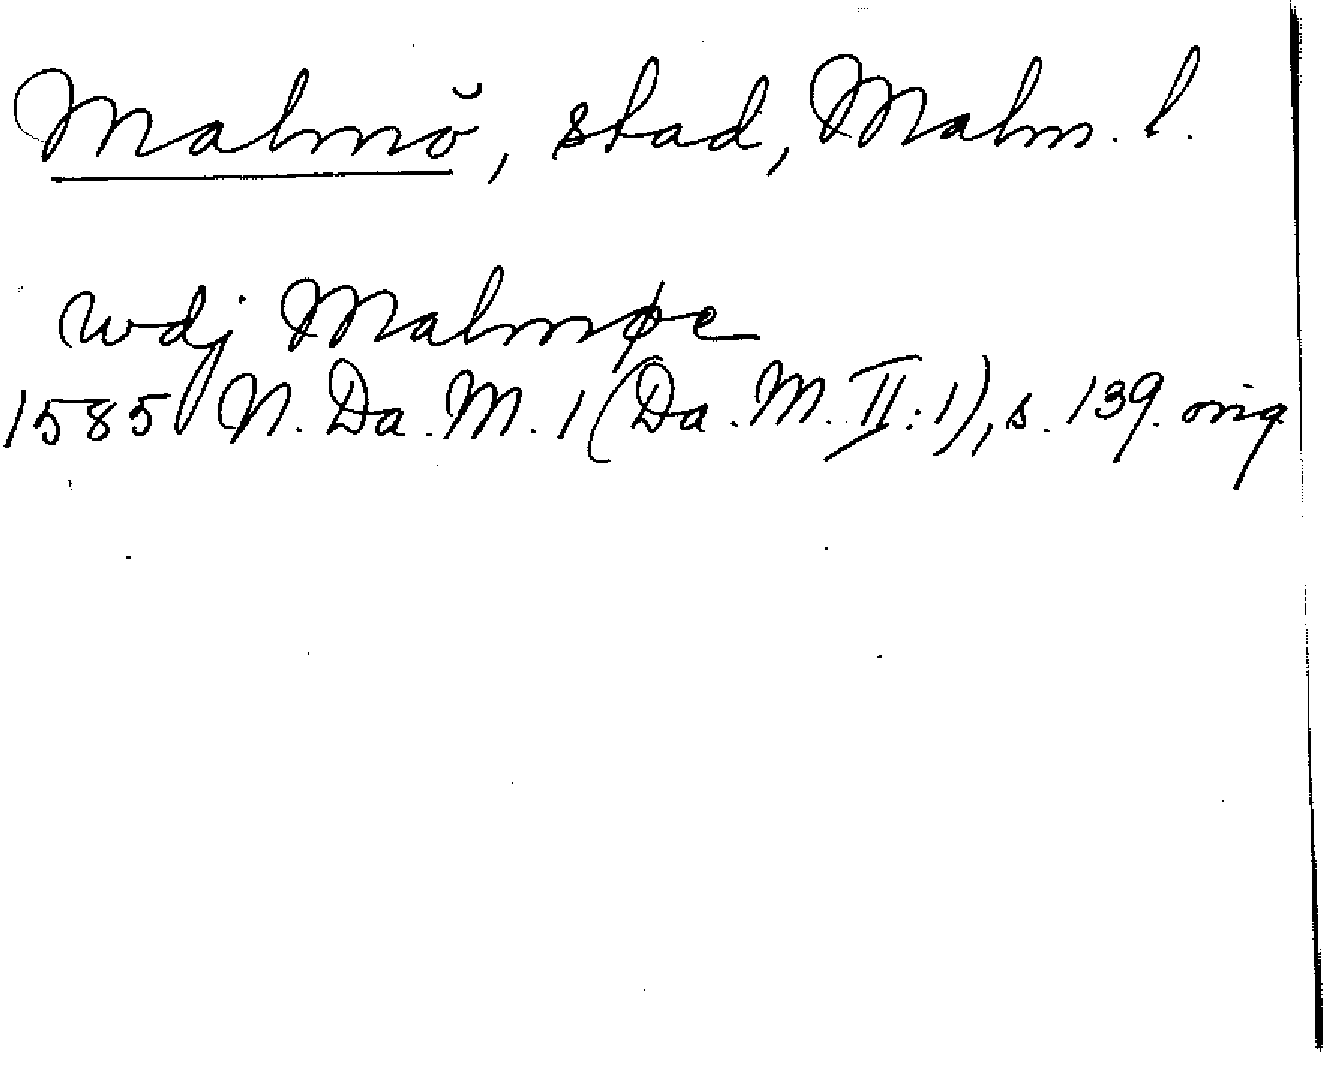 Malmö, stad, Malm. l.
wdj Malmøe
1585 N. Da. M. 1 (Da. M. II:1), s. 139. orig